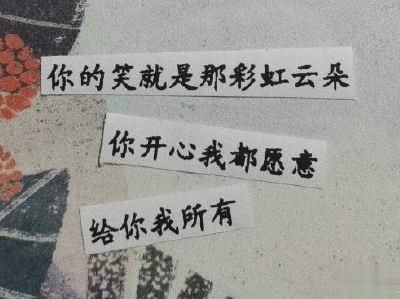 你的笑就是那彩虹云朵
你开心我都愿意
给你我所有